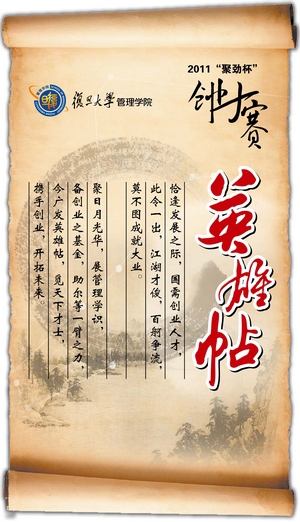 復旦大学管理学院
2011“聚劲杯”
创业大赛
英雄帖
恰逢发展之际，国需创业人才，
此令一出，江湖才俊，百舸争流，
莫不图成就大业。
聚日月光华，展管理学识，
备创业之基金，助尔等一臂之力，
今广发英雄帖，觅天下才士，
携手创业，开拓未来。